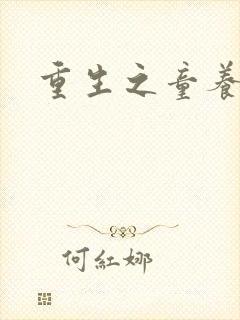 重生之童養
何紅娜